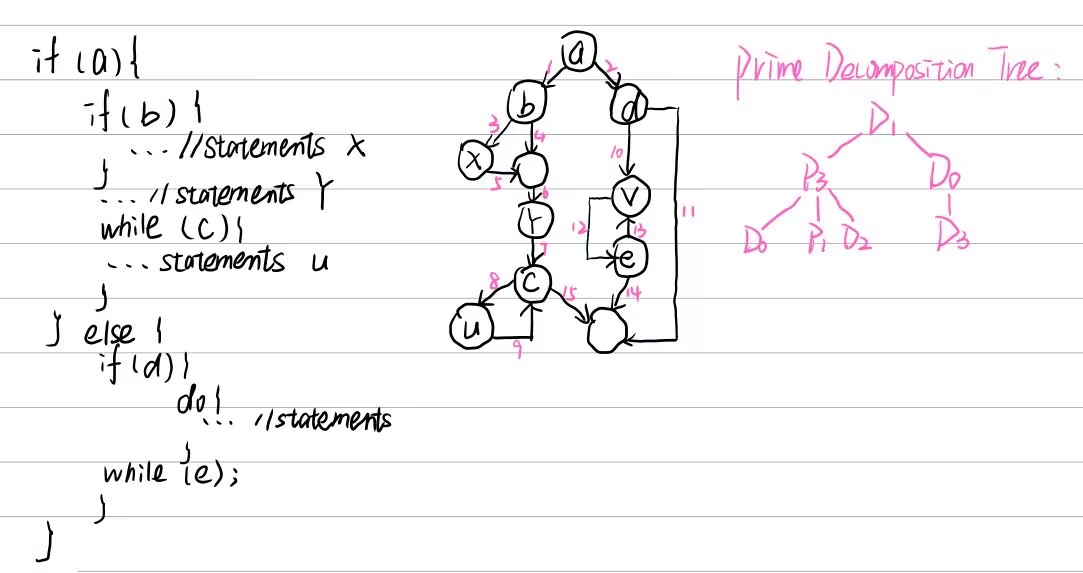 if (a) {
if (b) {
... //statements X
}
... //statements Y
while (c) {
... statements u
}
} else {
if (d) {
do {
... //statements
}
while (e);
}
}
a
1 2
b d
3 4
X
5
10
6
Y
V
11
12 13
7
C e
8 15 14
u
9
Prime Decomposition Tree:
D1
P3 D0
D0 P1 D2 D3